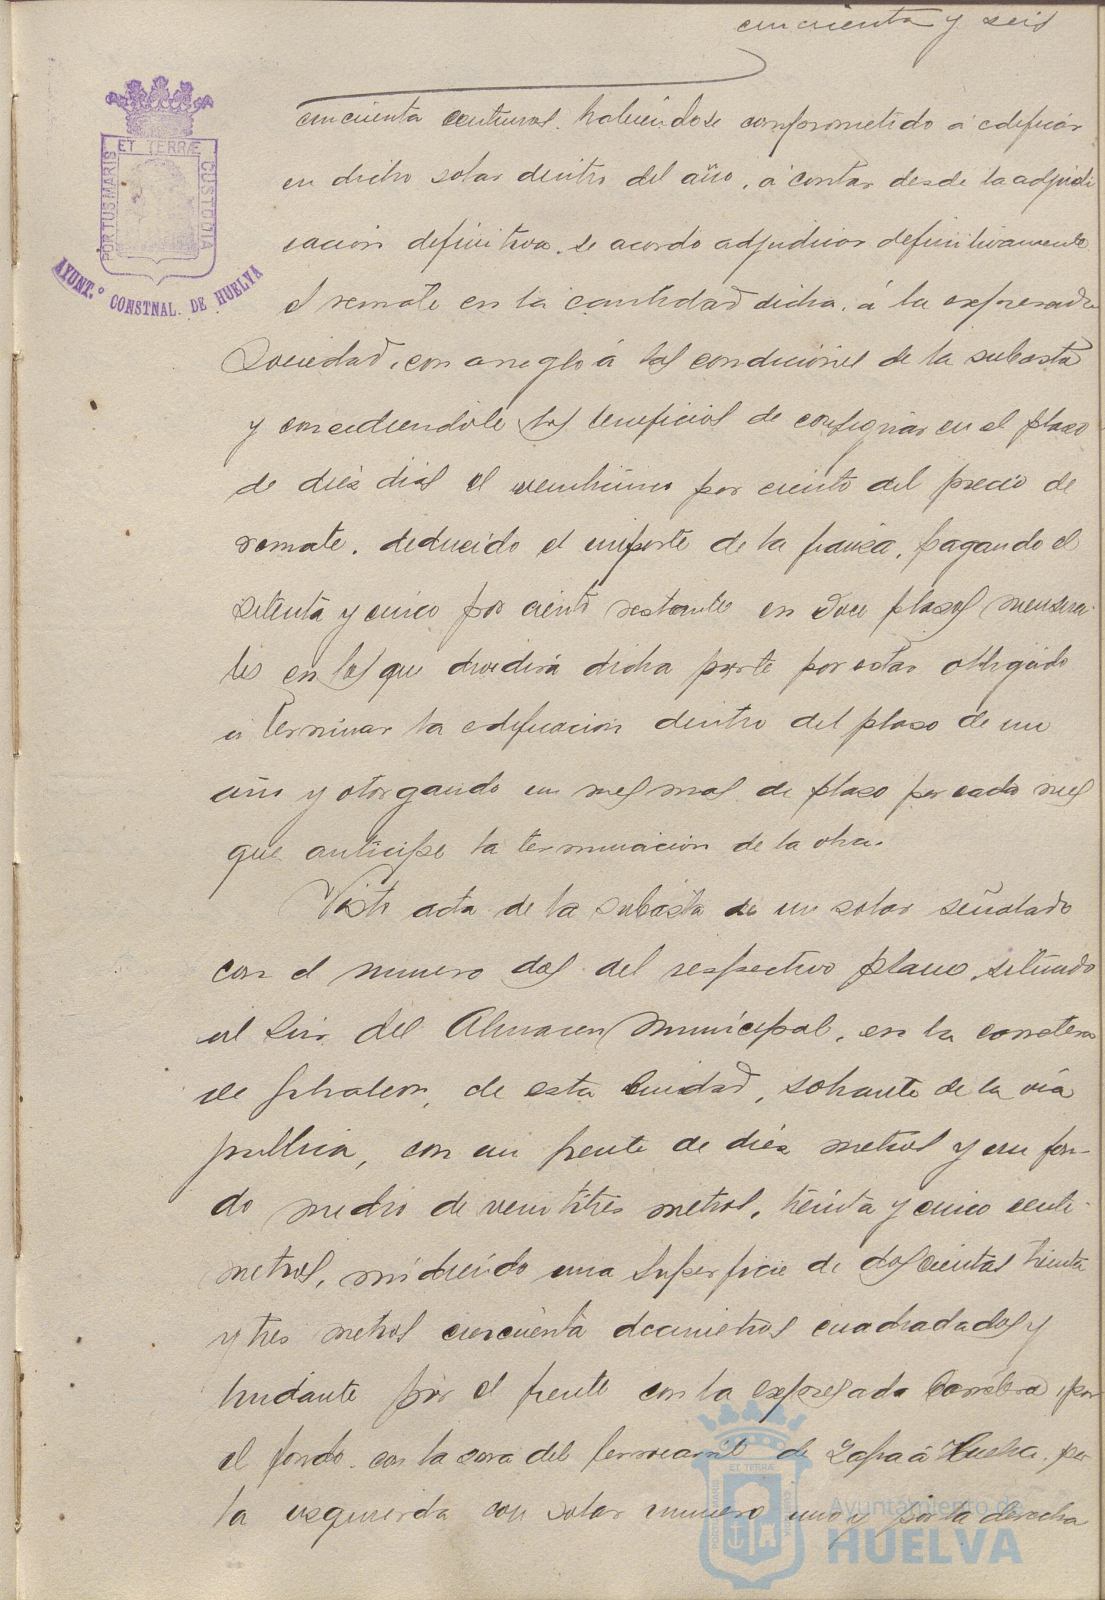 cincuenta y seis
cincuenta centimos. habiéndose comprometido á edificar
en dicho solar dentro del año, á contar desde la adjudi
cacion definitiva, se acordo adjudicar definitivamente
el remate en la cantidad dicha, á la expresada
Sociedad, con arreglo á las condiciones de la subasta
y concediendole los beneficios de consignar en el plazo
de diez dias el veinticinco por ciento del precio de
remate, deducido el importe de la fianza, pagando el
setenta y cinco por ciento restante en doce plazos mensua-
les en los que dividirá dicha parte por estar obligado
á terminar la edificacion dentro del plazo de un
año y otorgando un mes mas de plazo por cada mes
que anticipe la terminacion de la obra.
Vista acta de la subasta de un solar señalado
con el numero dos del respectivo plano, situado
al Sur del Almacen Municipal, en la carretera
de Gibraleon, de esta Ciudad, sobrante de la via
publica, con un frente de diez metros y un fon-
do medio de veintitres metros, treinta y cinco centi-
metros, midiendo una superficie de doscientas treinta
y tres metros cincuenta decimetros cuadrados y
lindante por el frente con la expresada Carretera, por
el fondo con la zona del ferrocarril de Zafra á Huelva, por
la izquierda con solar numero uno y por la derecha
PORTUS MARIS ET TERRÆ CUSTODIA
AYUNT.º CONSTNAL. DE HUELVA
Ayuntamiento de
HUELVA